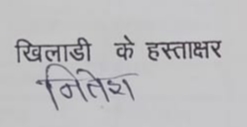 खिलाडी के हस्ताक्षर
नितेश